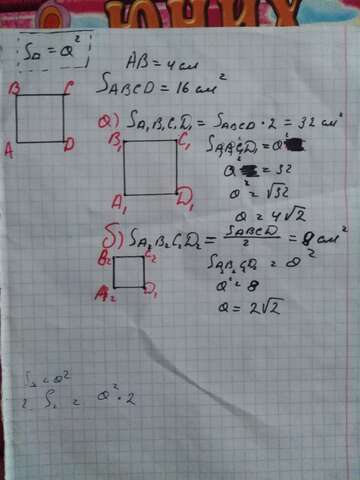 ЮНИХ
S□ = a²
AB = 4 см
S ABCD = 16 см²
B C
A D
а) S A₁B₁C₁D₁ = S ABCD · 2 = 32 см²
B₁ C₁
A₁ D₁
S A₁B₁C₁D₁ = a²
a² = 32
a² = √32
a = 4√2
б) S A₂B₂C₂D₂ = S ABCD / 2 = 8 см²
B₂ C₂
A₂ D₁
S A₂B₂C₂D₂ = a²
a² = 8
a = 2√2
= a²
2 S = a² · 2